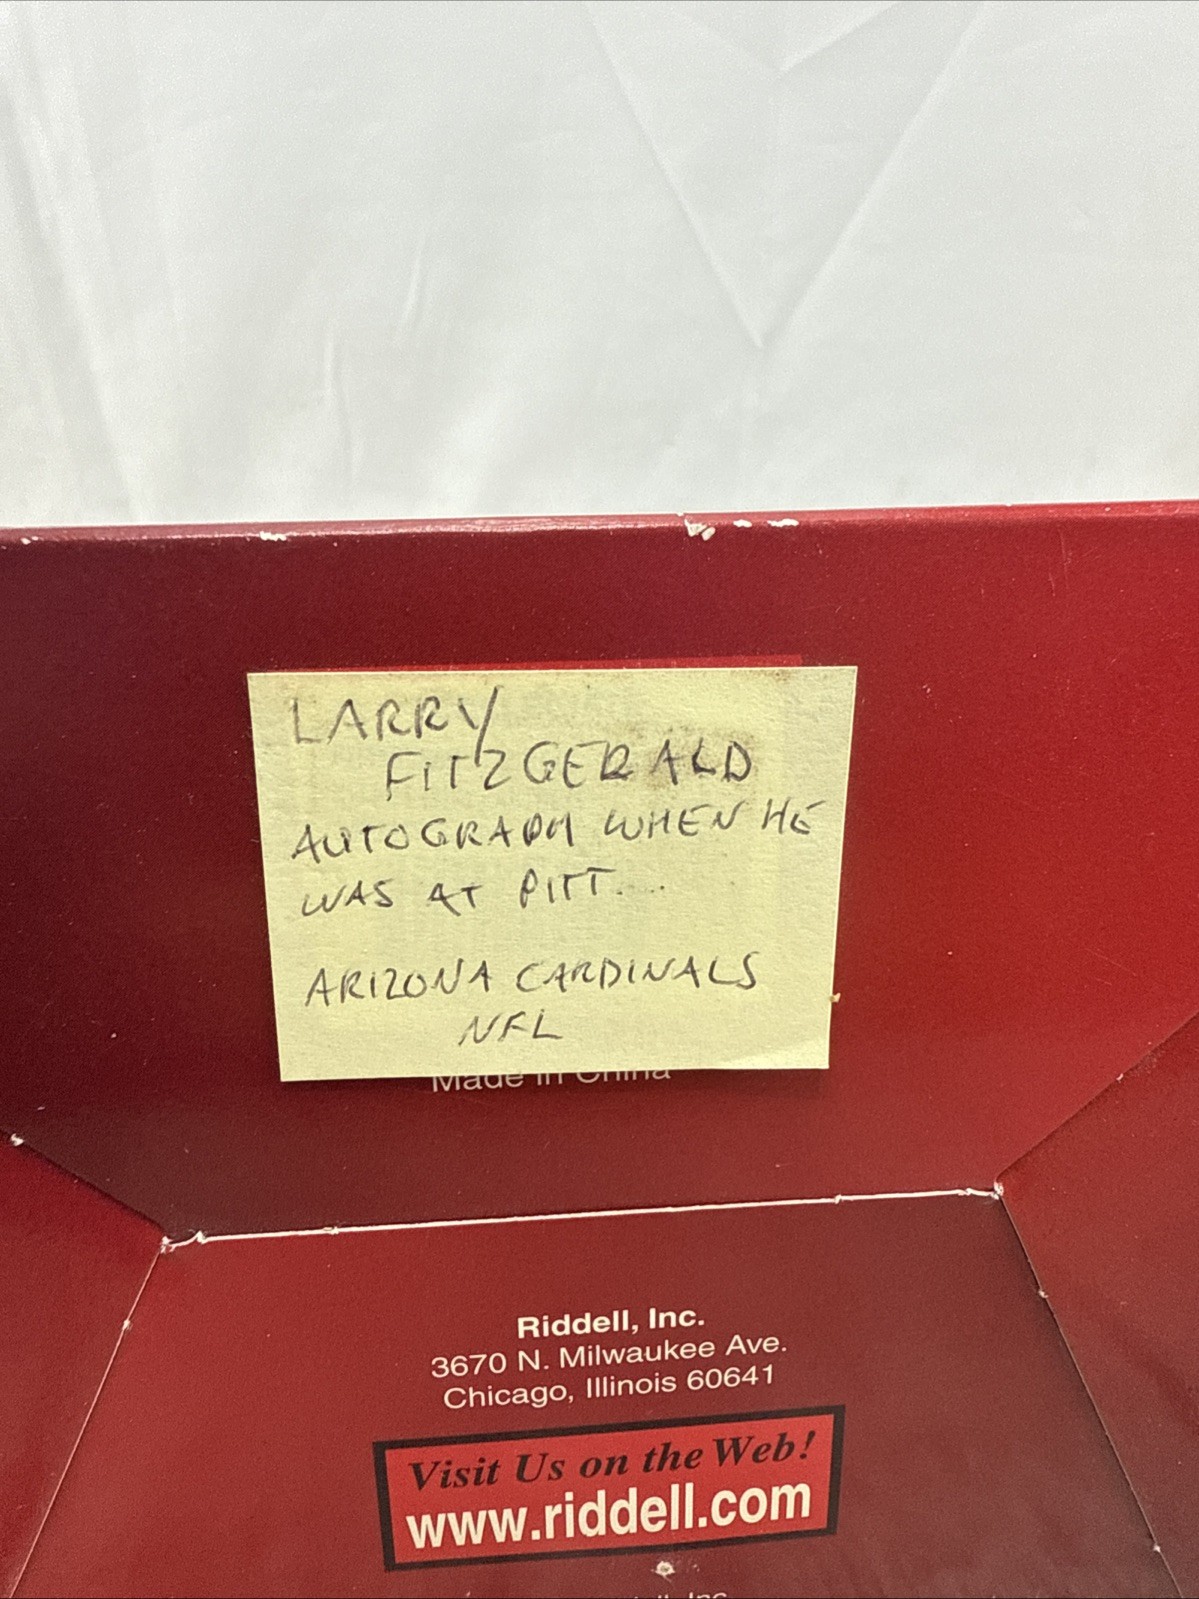 LARRY
FITZGERALD
AUTOGRAPH WHEN HE
WAS AT PITT....
ARIZONA CARDINALS
NFL
Made in China
Riddell, Inc.
3670 N. Milwaukee Ave.
Chicago, Illinois 60641
Visit Us on the Web!
www.riddell.com